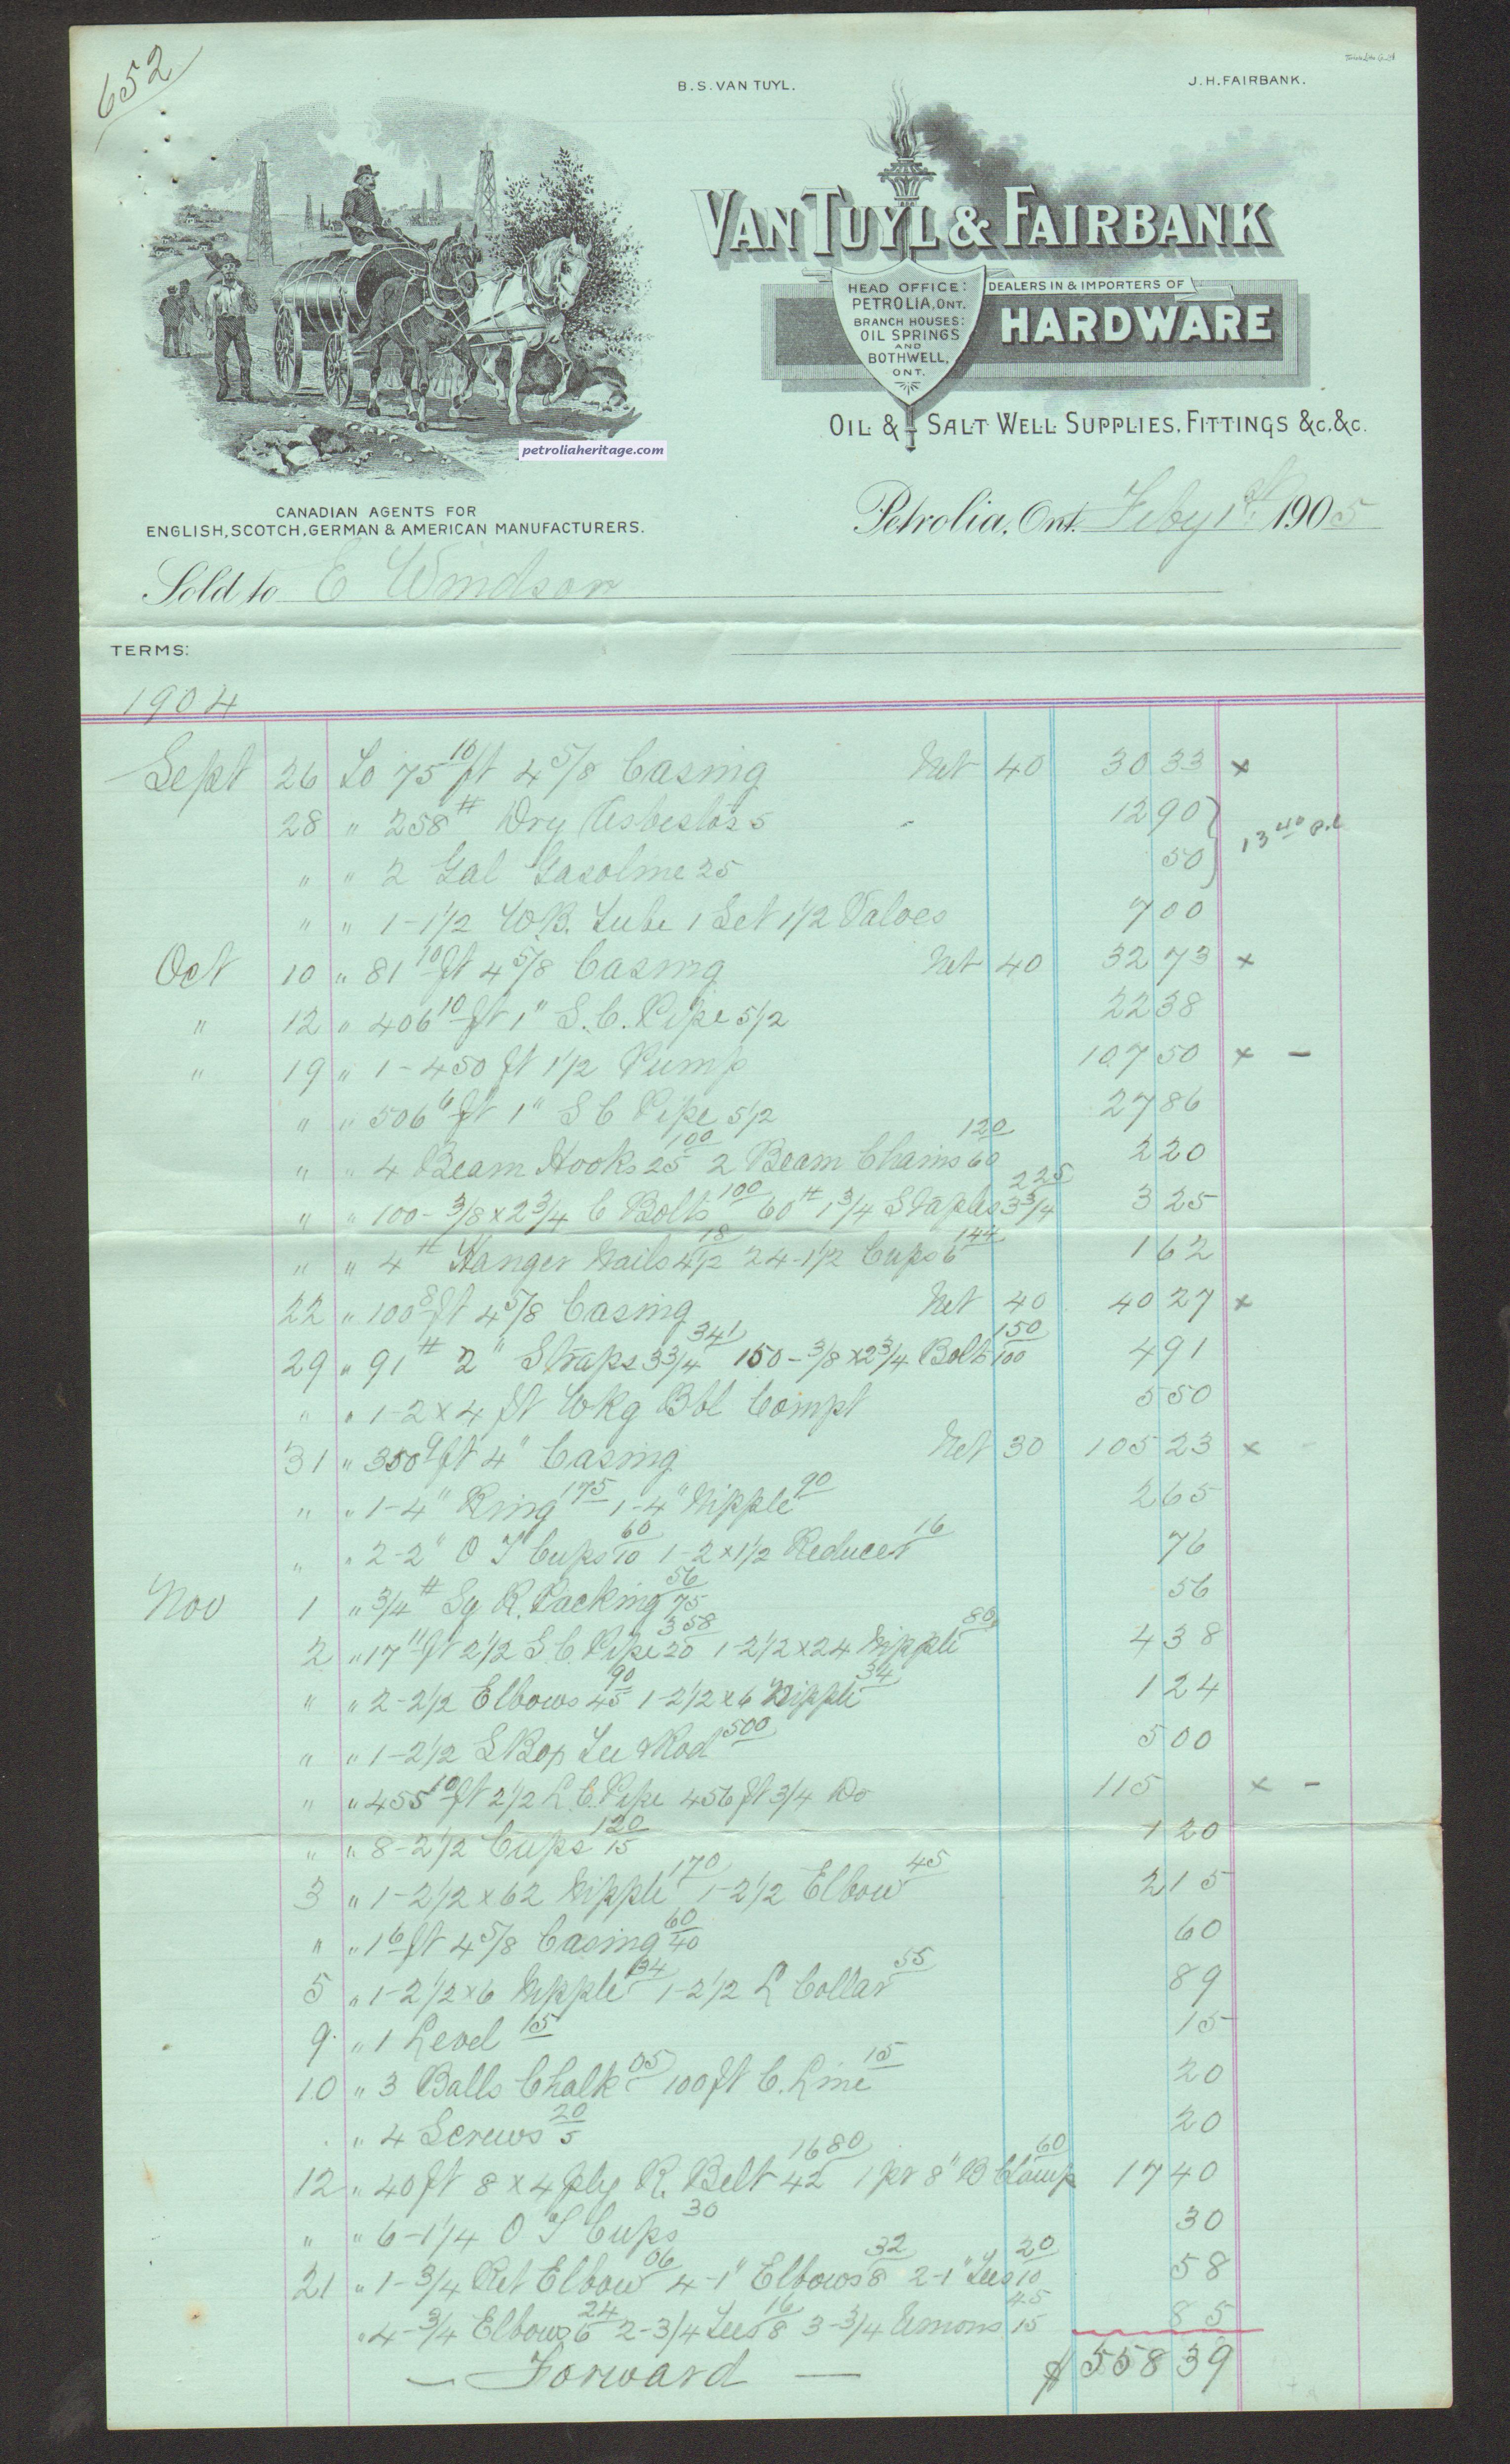 652
B.S. VAN TUYL.
J.H. FAIRBANK.
VAN TUYL & FAIRBANK
HEAD OFFICE:
PETROLIA, ONT.
BRANCH HOUSES:
OIL SPRINGS
AND
BOTHWELL,
ONT.
DEALERS IN & IMPORTERS OF
HARDWARE
OIL & SALT WELL SUPPLIES, FITTINGS &c,&c.
petroliaheritage.com
CANADIAN AGENTS FOR
ENGLISH, SCOTCH, GERMAN & AMERICAN MANUFACTURERS.
Petrolia, Ont. Feby 1st 1905
Sold to E Windsor
TERMS:
1904
Sept 26 To 75 10 ft 4 5/8 Casing Net 40 30 33 x
28 " 258 # Dry Asbestos 5 12 90
13 40 Pd
" " 2 Gal Gasoline 25 50
" " 1-1 1/2 W.B. Tube 1 Set 1 1/2 Valves 7 00
Oct 10 " 81 10 ft 4 5/8 Casing Net 40 32 73 x
" 12 " 406 10 ft 1" S.C. Pipe 5 1/2 22 38
" 19 " 1-450 ft 1 1/2 Pump 107 50 x -
" " 506 6 ft 1" S C Pipe 5 1/2 27 86
" " 4 Beam Hooks 25 100 2 Beam Chains 60 120 2 20
" " 100-3/8 x 2 3/4 C Bolts 100 60 # 1 3/4 Staples 3 3/4 225 3 25
" " 4 # Hanger Nails 4 1/2 18 24-1 1/2 Cups 6 144 1 62
22 " 100 8 ft 4 5/8 Casing Net 40 40 27 x
29 " 91 # 2" Straps 3 3/4 341 150-3/8 x 2 3/4 Bolts 150 100 4 91
" " 1-2 x 4 ft Wkg Bbl Compt 5 50
31 " 350 9 ft 4" Casing Net 30 105 23 x
" " 1-4" Ring 175 1-4" Nipple 90 2 65
" " 2-2" O S Cups 60 10 1-2 x 1 1/2 Reducer 16 76
Nov 1 " 3/4 # Sq R. Packing 56 75 56
2 " 17 11 ft 2 1/2 S C. Pipe 20 358 1-2 1/2 x 24 Nipple 80 4 38
" " 2-2 1/2 Elbows 45 90 1-2 1/2 x 6 Nipple 34 1 24
" " 1-2 1/2 S Box Tee & Rod 500 5 00
" " 455 10 ft 2 1/2 L.C. Pipe 456 ft 3/4 Do 115 x -
" " 8-2 1/2 Cups 120 15 1 20
3 " 1-2 1/2 x 62 Nipple 170 1-2 1/2 Elbow 45 2 15
" " 1 6 ft 4 5/8 Casing 60 40 60
5 " 1-2 1/2 x 6 Nipple 34 1-2 1/2 L Collar 55 89
9 " 1 Level 15 15
10 " 3 Balls Chalk 05 100 ft C. Line 15 20
" 4 Screws 20 5 20
12 " 40 ft 8 x 4 ply R. Belt 42 1680 1 pr 8" B Clamp 60 17 40
" " 6-1 1/4 O S Cups 30 30
21 " 1-3/4 Ret Elbow 06 4-1" Elbows 8 32 2-1" Tees 10 20 58
" 4-3/4 Elbows 6 24 2-3/4 Tees 8 16 3-3/4 Unions 15 45 85
— Forward — $558 39